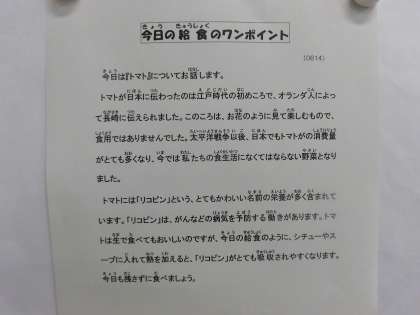 今日の給食のワンポイント
(0614)
今日は『トマト』についてお話します。
トマトが日本に伝わったのは江戸時代の初めころで、オランダ人によっ
て長崎に伝えられました。このころは、お花のように見て楽しむもので、
食用ではありませんでした。太平洋戦争以後、日本でもトマトがの消費量
がとても多くなり、今では私たちの食生活になくてはならない野菜となり
ました。
トマトには「リコピン」という、とてもかわいい名前の栄養が多く含まれて
います。「リコピン」は、がんなどの病気を予防する働きがあります。トマ
トは生で食べてもおいしいのですが、今日の給食のように、シチューやス
ープに入れて熱を加えると、「リコピン」がとても吸収されやすくなります。
今日も残さずに食べましょう。